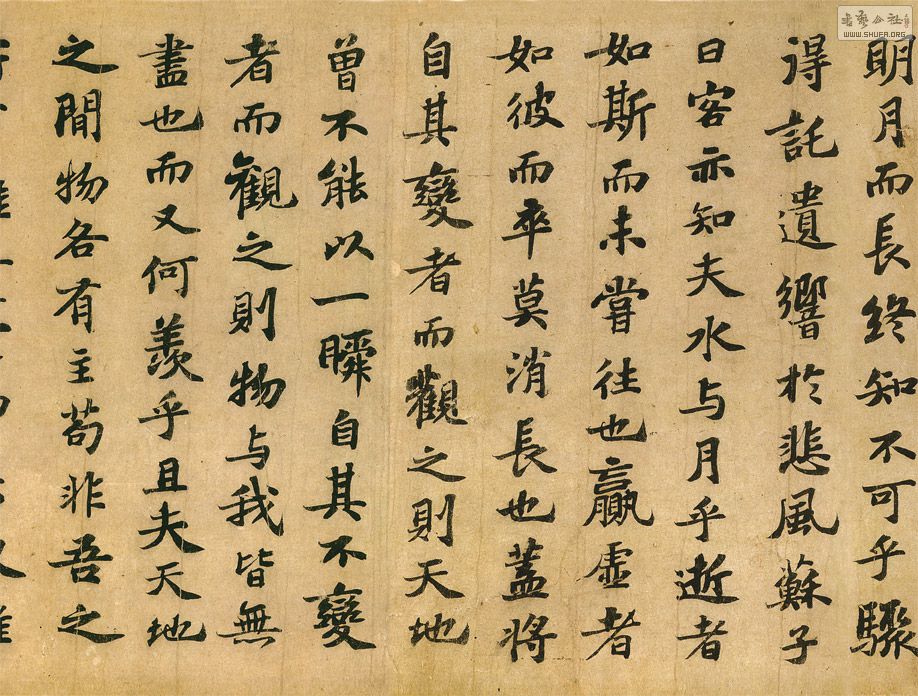 明月而長終知不可乎驟
得託遺響於悲風蘇子
曰客亦知夫水与月乎逝者
如斯而未嘗往也贏虛者
如彼而卒莫消長也蓋將
自其變者而觀之則天地
曾不能以一瞬自其不變
者而觀之則物与我皆無
盡也而又何羨乎且夫天地
之間物各有主苟非吾之
書藝公社
WWW.SHUFA.ORG